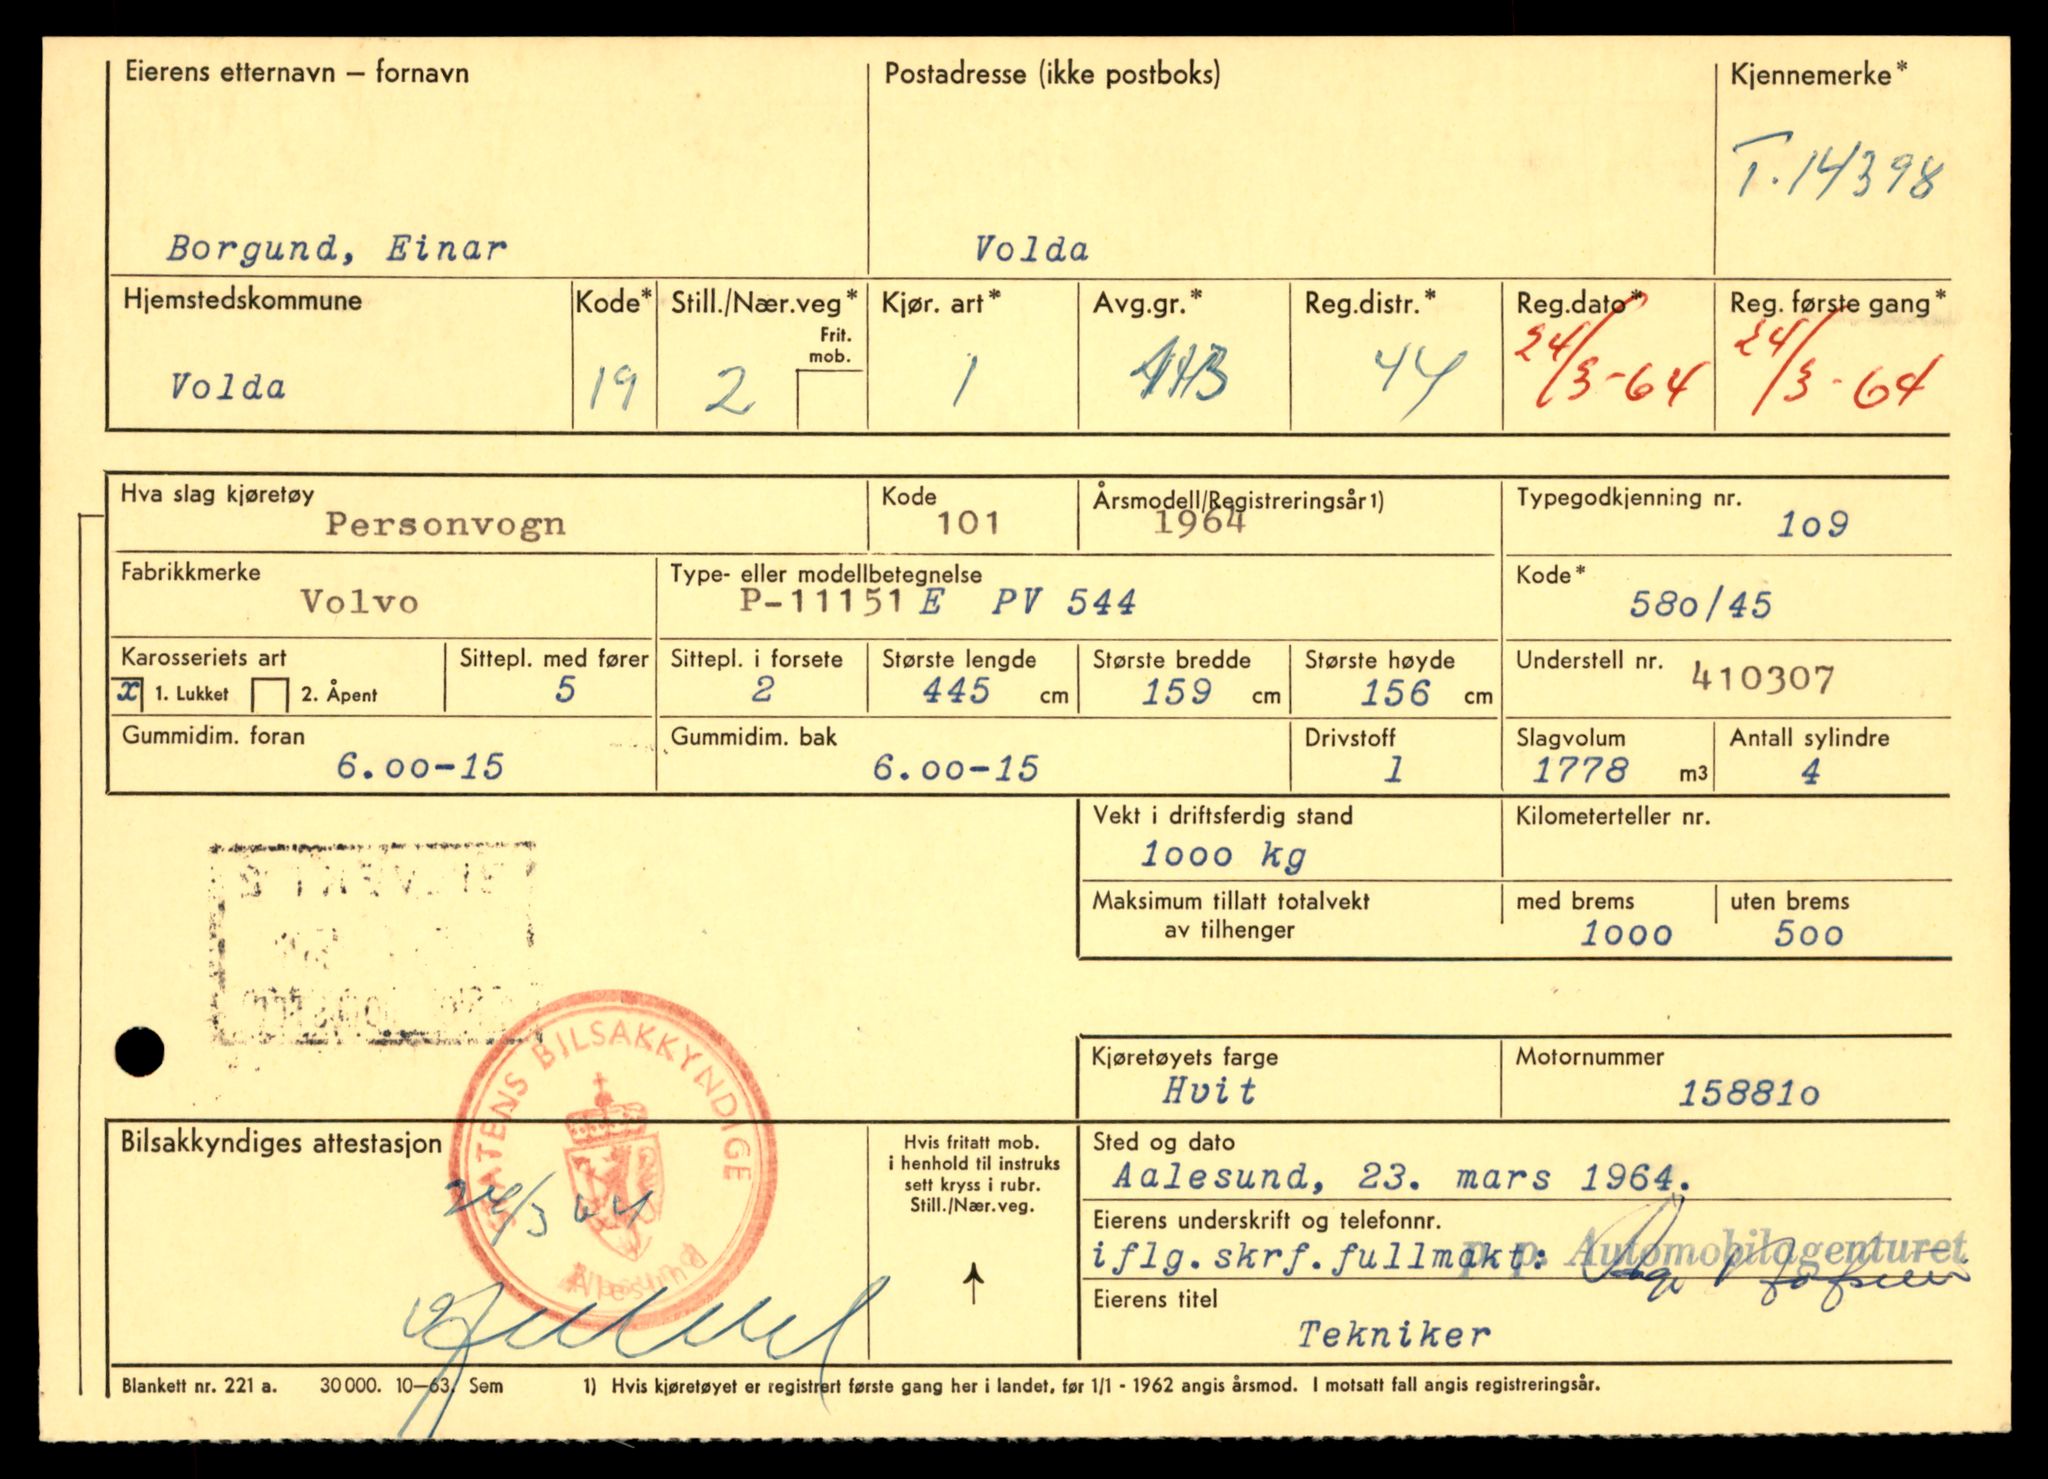 Eierens etternavn – fornavn
Borgund, Einar
Postadresse (ikke postboks)
Volda
Kjennemerke*
T.14398
Hjemstedskommune
Volda
Kode*
19
Still./Nær.veg*
2
Frit.
mob.
Kjør. art*
1
Avg.gr.*
Reg.distr.*
44
Reg.dato*
24/3-64
Reg. første gang*
24/3-64
Hva slag kjøretøy
Personvogn
Kode
101
Årsmodell/Registreringsår1)
1964
Typegodkjenning nr.
1o9
Fabrikkmerke
Volvo
Type- eller modellbetegnelse
P-11151 E PV 544
Kode*
58o/45
Karosseriets art
x 1. Lukket 2. Åpent
Sittepl. med fører
5
Sittepl. i forsete
2
Største lengde
445 cm
Største bredde
159 cm
Største høyde
156 cm
Understell nr.
410307
Gummidim. foran
6.oo-15
Gummidim. bak
6.oo-15
Drivstoff
1
Slagvolum
1778 m3
Antall sylindre
4
Vekt i driftsferdig stand
1ooo kg
Kilometerteller nr.
Maksimum tillatt totalvekt
av tilhenger
med brems
1ooo
uten brems
5oo
Kjøretøyets farge
Hvit
Motornummer
15881o
Bilsakkyndiges attestasjon
STATENS BILSAKKYNDIGE
Ålesund
24/3 64
Hvis fritatt mob.
i henhold til instruks
sett kryss i rubr.
Still./Nær.veg.
Sted og dato
Aalesund, 23. mars 1964.
Eierens underskrift og telefonnr.
iflg.skrf.fullmakt: p. p. Automobilagenturet
Eierens titel
Tekniker
Blankett nr. 221 a. 30 000. 10–63. Sem
1) Hvis kjøretøyet er registrert første gang her i landet, før 1/1 - 1962 angis årsmod. I motsatt fall angis registreringsår.